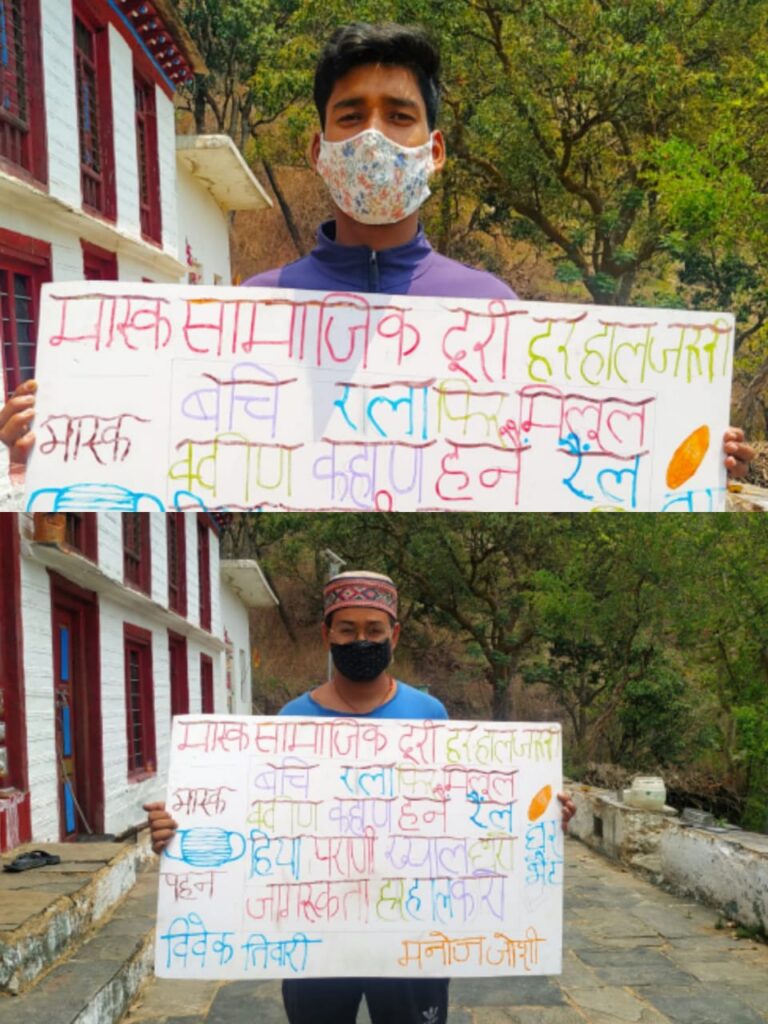 मास्क सामाजिक दूरी हर हाल जरुरी
बचि रला फिर मिलूल
मास्क
क्वीण कहाण हनै रैल
मास्क सामाजिक दूरी हर हाल जरुरी
बचि रला फिर मिलूल
मास्क
क्वीण कहाण हनै रैल
हिया पराणी ख्याल धरो
पहन
जागरुकता हर हाल करो
विवेक तिवारी
मनोज जोशी